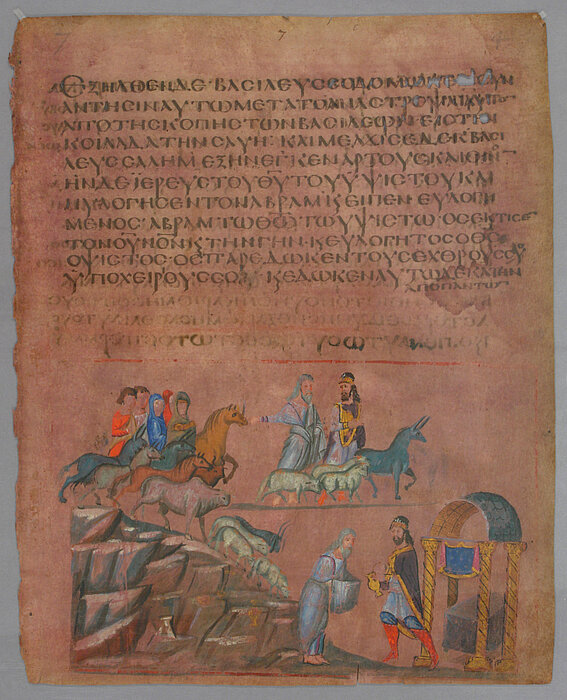 7
ΕΞΗΛΘΕΝΔΕ·ΒΑϹΙΛΕΥϹϹΟΔΟΜΩΝ
ΑΝΤΗϹΙΝΑΥΤΩΜΕΤΑΤΟΑΝΑϹΤΡΕΨΑΙΑΥΤΟ
ΑΠΟΤΗϹΚΟΠΗϹΤΩΝΒΑϹΙΛΕΩΝ·ΕΙϹΤΗΝ
ΚΟΙΛΑΔΑΤΗΝϹΑΥΗ·ΚΑΙΜΕΛΧΙϹΕΔΕΚΒΑϹΙ
ΛΕΥϹϹΑΛΗΜΕΞΗΝΕΓΚΕΝΑΡΤΟΥϹΚΑΙΟΙΝΟ
ΗΝΔΕΪΕΡΕΥϹΤΟΥΘΥΤΟΥΥΨΙϹΤΟΥΚΑΙ
ΗΥΛΟΓΗϹΕΝΤΟΝΑΒΡΑΜΚΕΙΠΕΝΕΥΛΟΓΗ
ΜΕΝΟϹ·ΑΒΡΑΜΤΩΘΩΤΩΥΨΙϹΤΩ·ΟϹΕΚΤΙϹΕ
ΤΟΝΟΥΝΟΝΚΤΗΝΓΗΝ·ΚΕΥΛΟΓΗΤΟϹΟΘϹ
ΟΥΨΙϹΤΟϹ·ΟϹΠΑΡΕΔΩΚΕΝΤΟΥϹΕΧΘΡΟΥϹϹΟΥ
ΥΠΟΧΕΙΡΟΥϹϹΟΙ·ΚΕΔΩΚΕΝΑΥΤΩΔΕΚΑΤΗΝ
ΑΠΟΠΑΝΤΩΝ